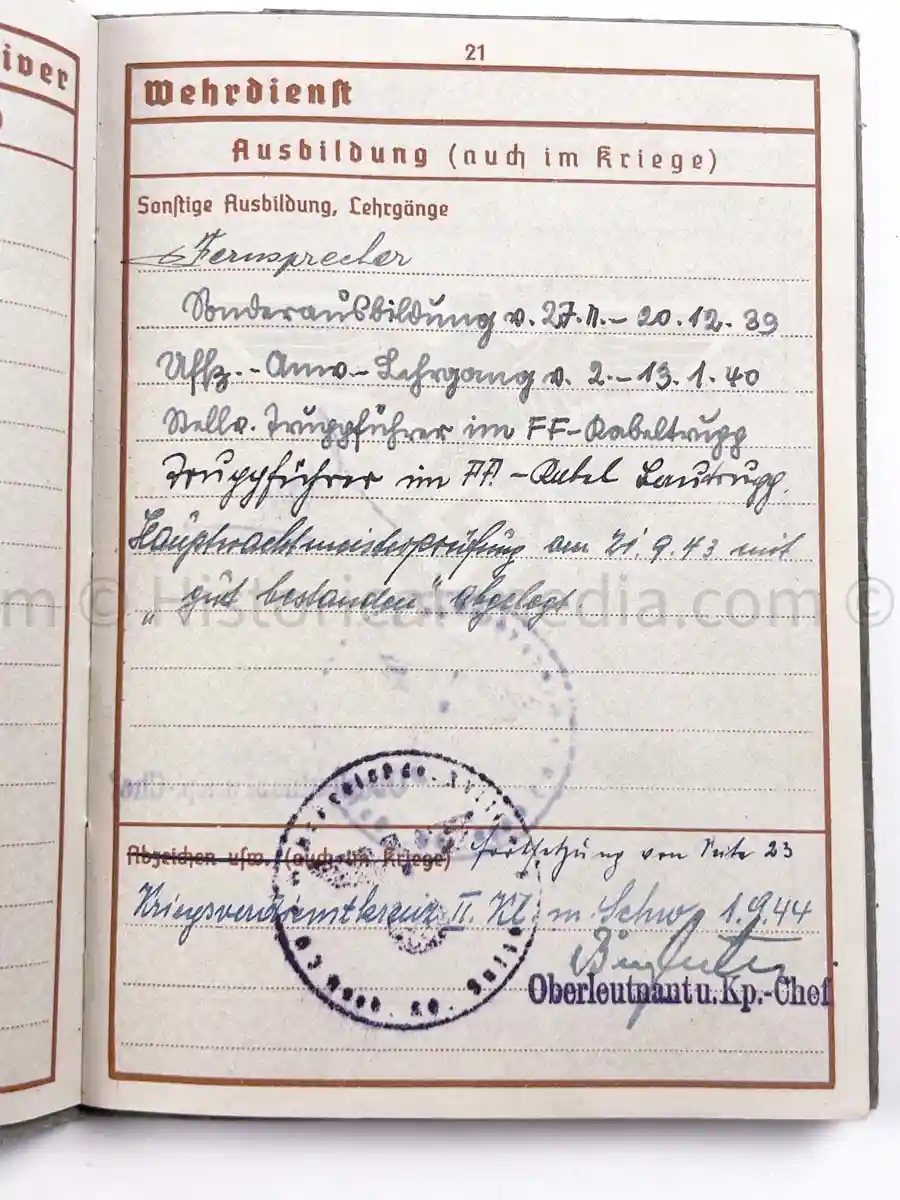 iver
21
Wehrdienst
Ausbildung (auch im Kriege)
Sonstige Ausbildung, Lehrgänge
Fernsprecher
Sonderausbildung v. 27.11.–20.12.39
Uffz.-Anw.-Lehrgang v. 2.–13.1.40
Stellv. Truppführer im FF-Kabeltrupp
Truppführer im FF-Kabel Bautrupp.
Hauptwachtmeisterprüfung am 21.9.43 mit
„gut bestanden" abgelegt.
m © HistoricalMedia.com ©
Abzeichen usw. (auch im Kriege) Fortsetzung von Seite 23
Kriegsverdienstkreuz II. Kl. m. Schw. 1.9.44
Oberleutnant u. Kp.-Chef